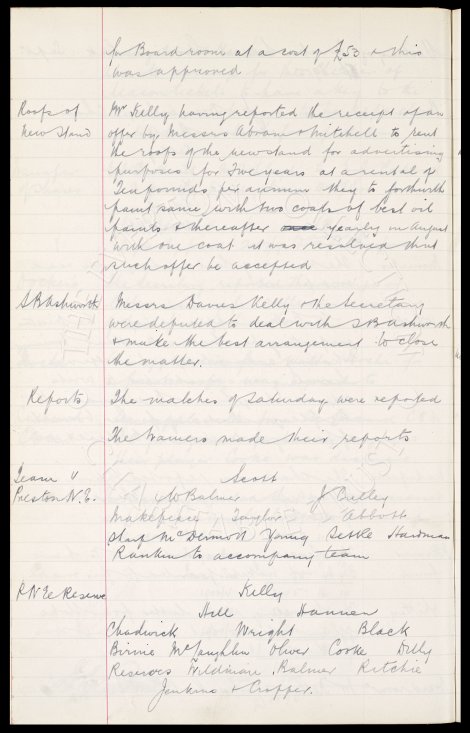 for Boardroom at a cost of £53 & this
was approved
Roofs of
new stand
Mr Kelly having reported the receipt of an
offer by Messrs Abram & Mitchell to rent
the roofs of the new stand for advertising
purposes for five years at a rental of
Ten pounds per annum they to forthwith
paint same with two coats of best oil
paints & thereafter yearly in August
with one coat it was resolved that
such offer be accepted
S B Ashworth
Messrs Davies Kelly & the Secretary
were deputed to deal with S B Ashworth
& make the best arrangement to close
the matter.
Reports
The matches of Saturday were reported
The trainers made their reports
Team v
Preston N.E.
Scott
W Balmer J Crelley
Makepeace Taylor Abbott
Sharp McDermott Young Settle Hardman
Rankin to accompany team
P N E Reserve
Kelly
Hill Hannon
Chadwick Wright Black
Birnie McLaughlin Oliver Cooke Dilly
Reserves Wildman, Balmer Ritchie
Jenkins & Cropper.